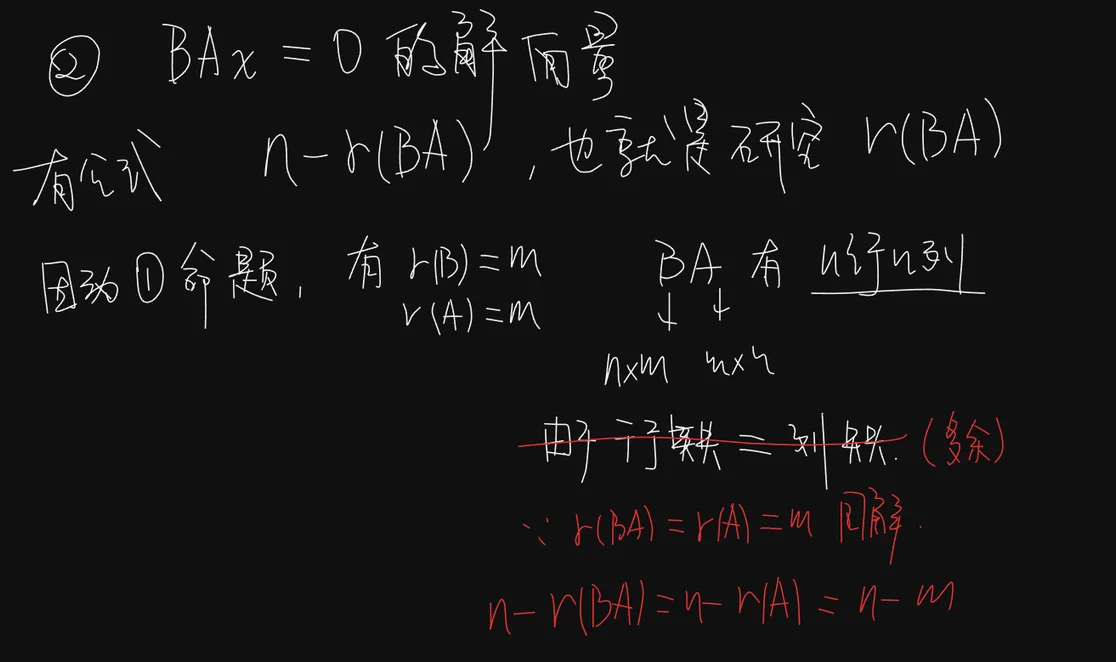 ② BAx = 0 的解向量
有公式 n-r(BA), 也就是研究 r(BA)
因为①命题, 有 r(B)=m BA 有 n行n列
r(A)=m ↓ ↓
n×m m×n
由于行秩=列秩. (多余)
∵ r(BA)=r(A)=m 同解.
n-r(BA)=n-r(A)=n-m